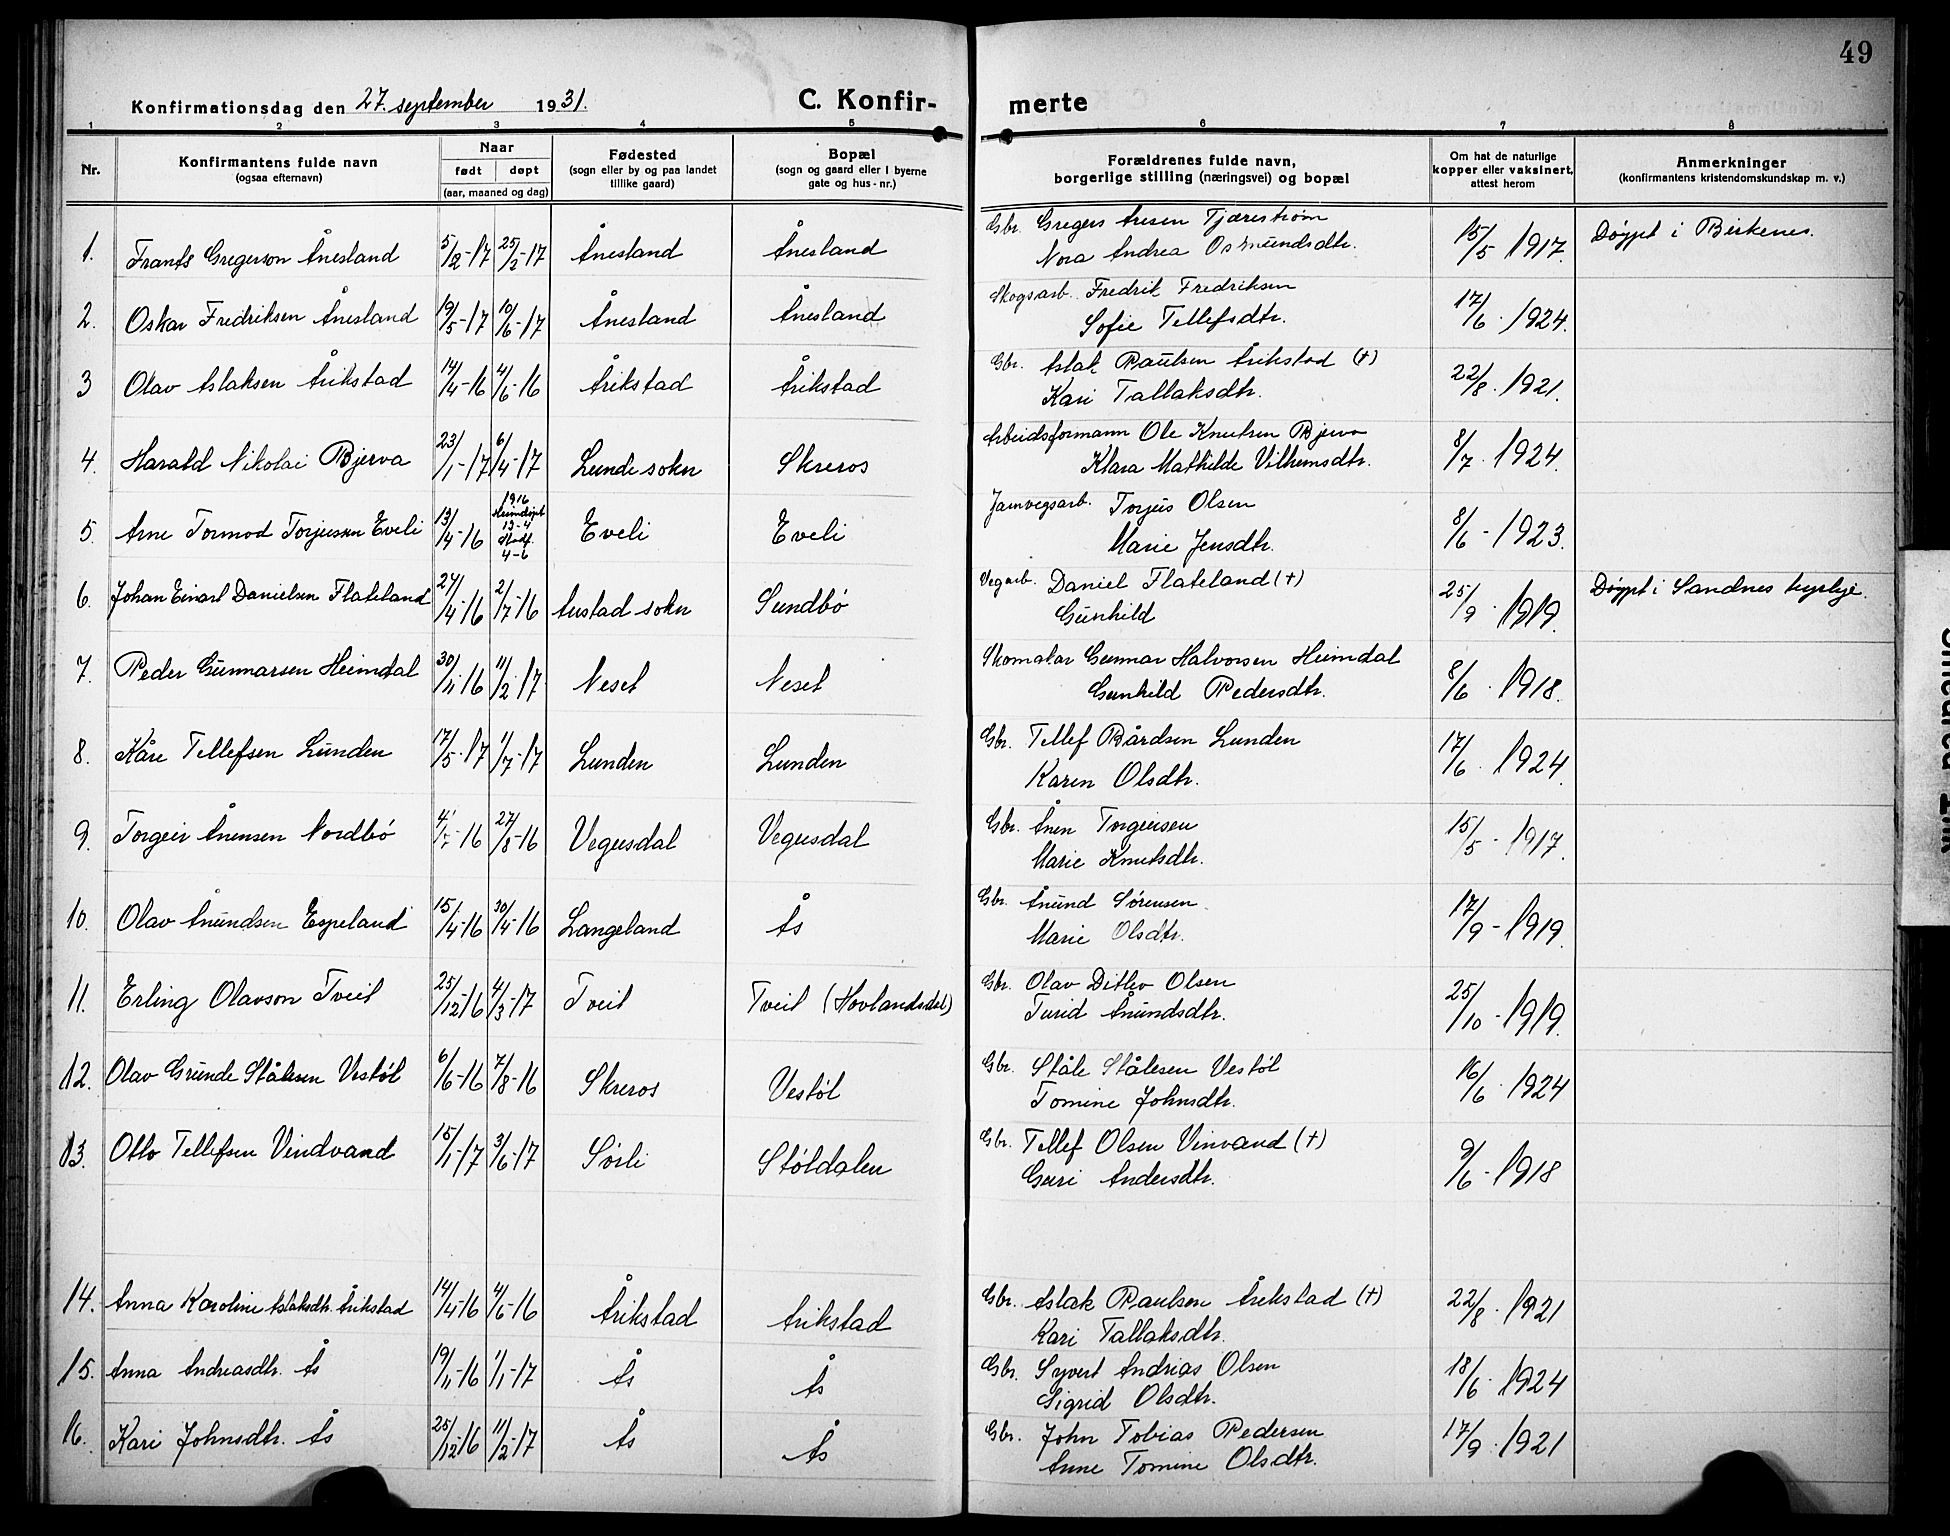 49
Konfirmationsdag den 27. september 1931.
C. Konfir-merte
1 2 3 4 5 6 7 8
Nr.
Konfirmantens fulde navn
(ogsaa efternavn)
Naar
født døpt
(aar, maaned og dag)
Fødested
(sogn eller by og paa landet
tillike gaard)
Bopæl
(sogn og gaard eller i byerne
gate og hus-nr.)
Forældrenes fulde navn,
borgerlige stilling (næringsvei) og bopæl
Om hat de naturlige
kopper eller vaksinert,
attest herom
Anmerkninger
(konfirmantens kristendomskundskap m. v.)
1. Frants Gregerson Ånesland 5/2-17 25/2-17 Ånesland Ånesland Gbr. Gregers Aresen Tjærestrøm 15/5 1917. Døypt i Birkenes.
Nora Andrea Osmundsdtr.
2. Oskar Fredriksen Ånesland 19/5-17 10/6-17 Ånesland Ånesland Skogsarb. Fredrik Fredriksen 17/6. 1924.
Sofie Tellefsdtr.
3 Olav Aslaksen Årikstad 14/4-16 4/6-16 Årikstad Årikstad Gbr. Aslak Paulsen Årikstad (+) 22/8. 1921.
Kari Tallaksdtr.
4. Harald Nikolai Bjerva 23/1-17 6/4-17 Lunde sokn Skreros Arbeidsformann Ole Knutsen Bjerva 8/7. 1924.
Klara Mathilde Vilhemsdtr.
5. Arne Tormod Torjussen Eveli 13/4-16 1916 Heimdøpt 13-4 Stadf. 4-6 Eveli Eveli Jarnvegsarb. Torjus Olsen 8/6-1923.
Marie Jensdtr.
6. Johan Einart Danielsen Flateland 27/4-16 2/7-16 Austad sokn Sundbø Vegarb. Daniel Flateland (+) 25/9. 1919. Døypt i Sandnes kyrkje.
Gunhild
7. Peder Gunnarsen Heimdal 30/11-16 11/2-17 Neset Neset Skomakar Gunnar Halvorsen Heimdal 8/6. 1918.
Gunhild Pedersdtr.
8. Kåre Tellefsen Lunden 17/5-17 1/7-17 Lunden Lunden Gbr. Tellef Bårdsen Lunden 17/6. 1924.
Karen Olsdtr.
9. Torgeir Ånensen Nordbø 27/8-16 Vegusdal Vegusdal Gbr. Ånen Torgeirsen 15/5-1917.
Marie Knutsdtr.
10. Olav Ånundsen Espeland 15/4-16 30/4-16 Langeland Ås Gbr. Ånund Sørensen 17/9-1919.
Marie Olsdtr.
11. Erling Olavson Tveit 25/12-16 4/3-17 Tveit Tveit (Hovlandsdal) Gbr. Olav Ditlev Olsen 25/10-1919.
Turid Ånundsdtr.
12. Olav Grunde Stålesen Vestøl 6/6-16 7/8-16 Skreros Vestøl Gbr. Ståle Stålesen Vestøl 16/6. 1924
Tomine Johnsdtr.
13. Otto Tellefsen Vindvand 15/1-17 3/6-17 Sørli Støldalen Gbr. Tellef Olsen Vinvand (+) 9/6-1918
Guri Andersdtr.
14. Anna Karoline Aslaksdtr. Årikstad 14/4-16 4/6-16 Årikstad Årikstad Gbr. Aslak Paulsen Årikstad (+) 22/8. 1921
Kari Tallaksdtr.
15. Anna Andreasdtr. Ås 19/11-16 1/1-17 Ås Ås Gbr. Syvert Andrias Olsen 18/6. 1924
Sigrid Olsdtr.
16. Kari Johnsdtr. Ås 25/12-16 11/2-17 Ås Ås Gbr. John Tobias Pedersen 17/9. 1921
Anne Tomine Olsdtr.